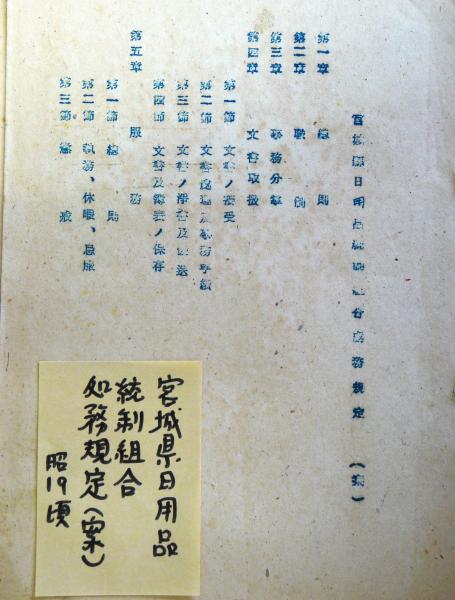 宮城縣日用品統制組合處務規定　（案）
第一章　總則
第二章　職制
第三章　事務分掌
第四章　文書取扱
第一節　文書ノ接受
第二節　文書處理及事務手続
第三節　文書ノ淨書及発送
第四節　文書及簿表ノ保存
第五章　服務
第一節　總則
第二節　執務、休暇、忌服
第三節　懲戒
宮城県日用品
統制組合
処務規定（案）
昭19頃